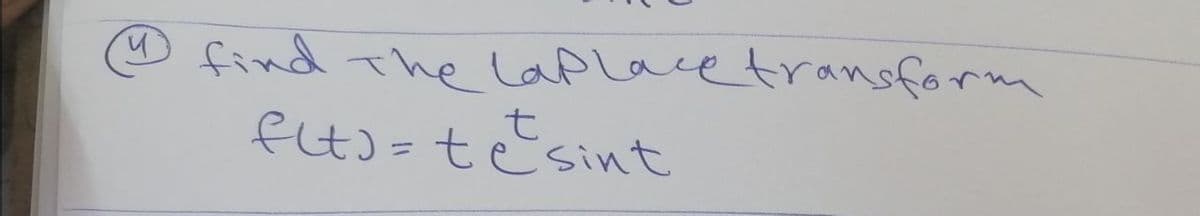 ④ find The laplace transform
f(t) = t e^t sint